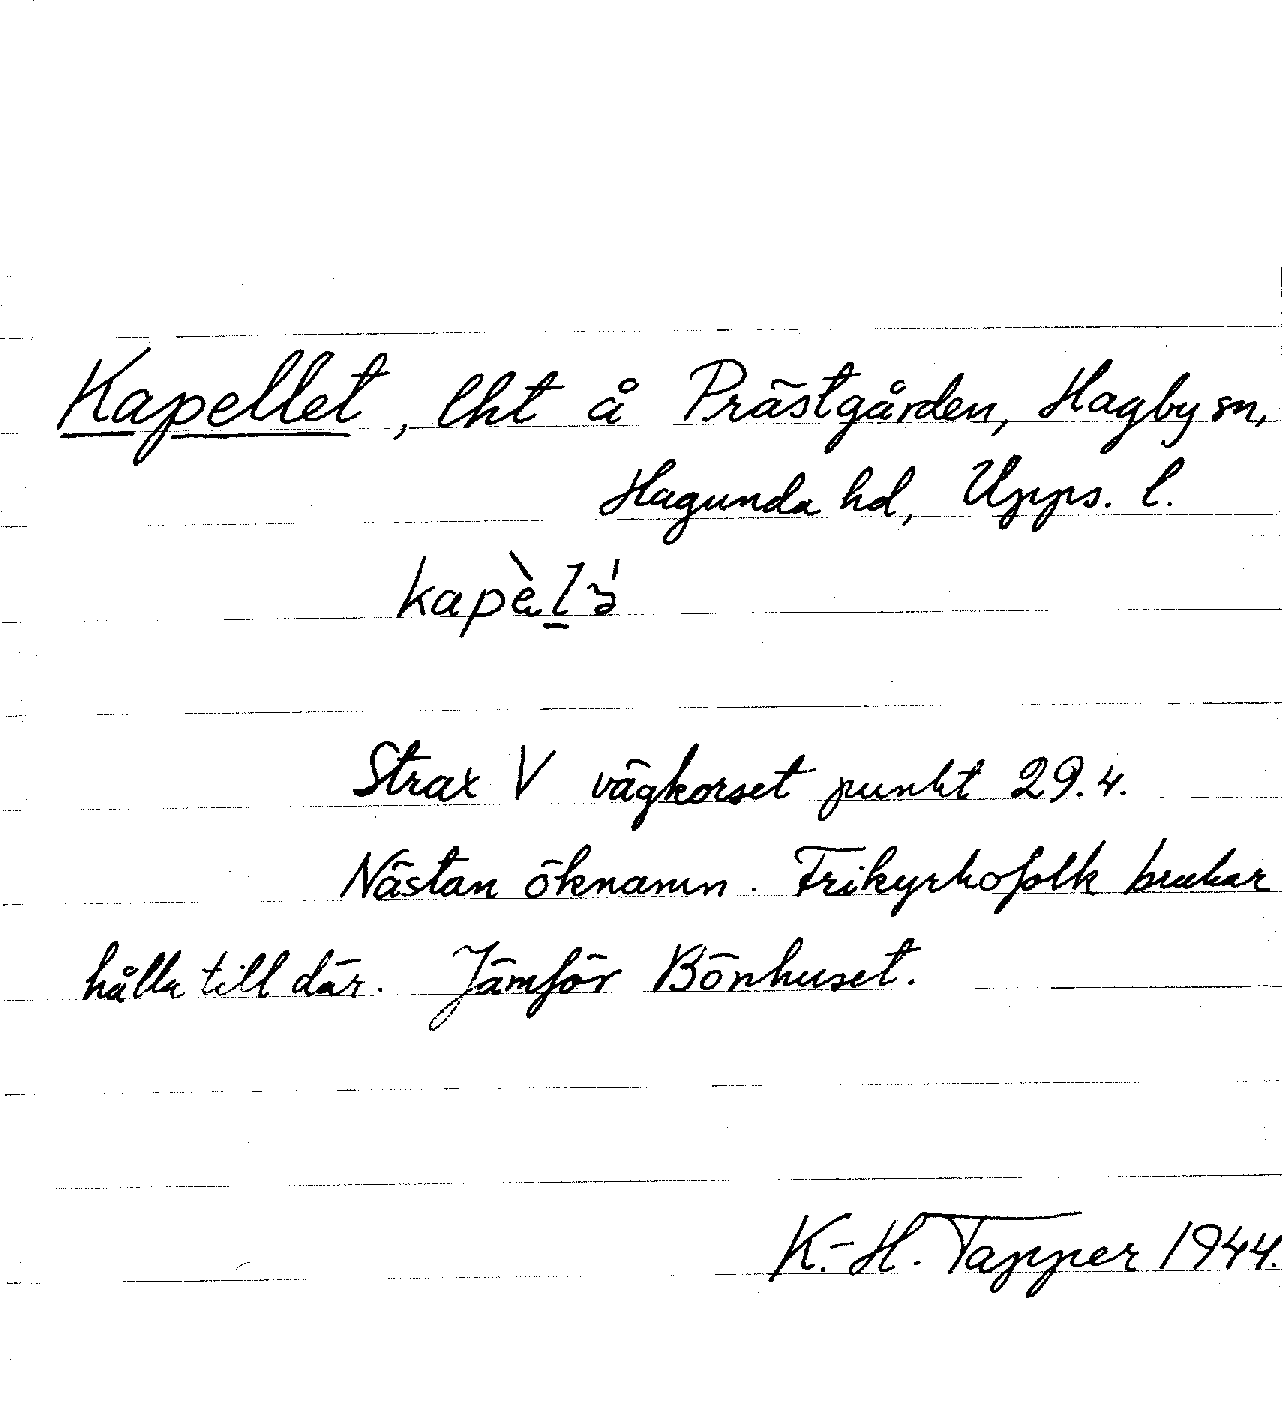 Kapellet, lht å Prästgården, Hagby sn,
Hagunda hd, Upps. l.
kapàlə́
Strax V vägkorset punkt 29.4.
Nästan öknamn. Frikyrkofolk brukar
hålla till där. Jämför Bönhuset.
K.-H. Tapper 1944.